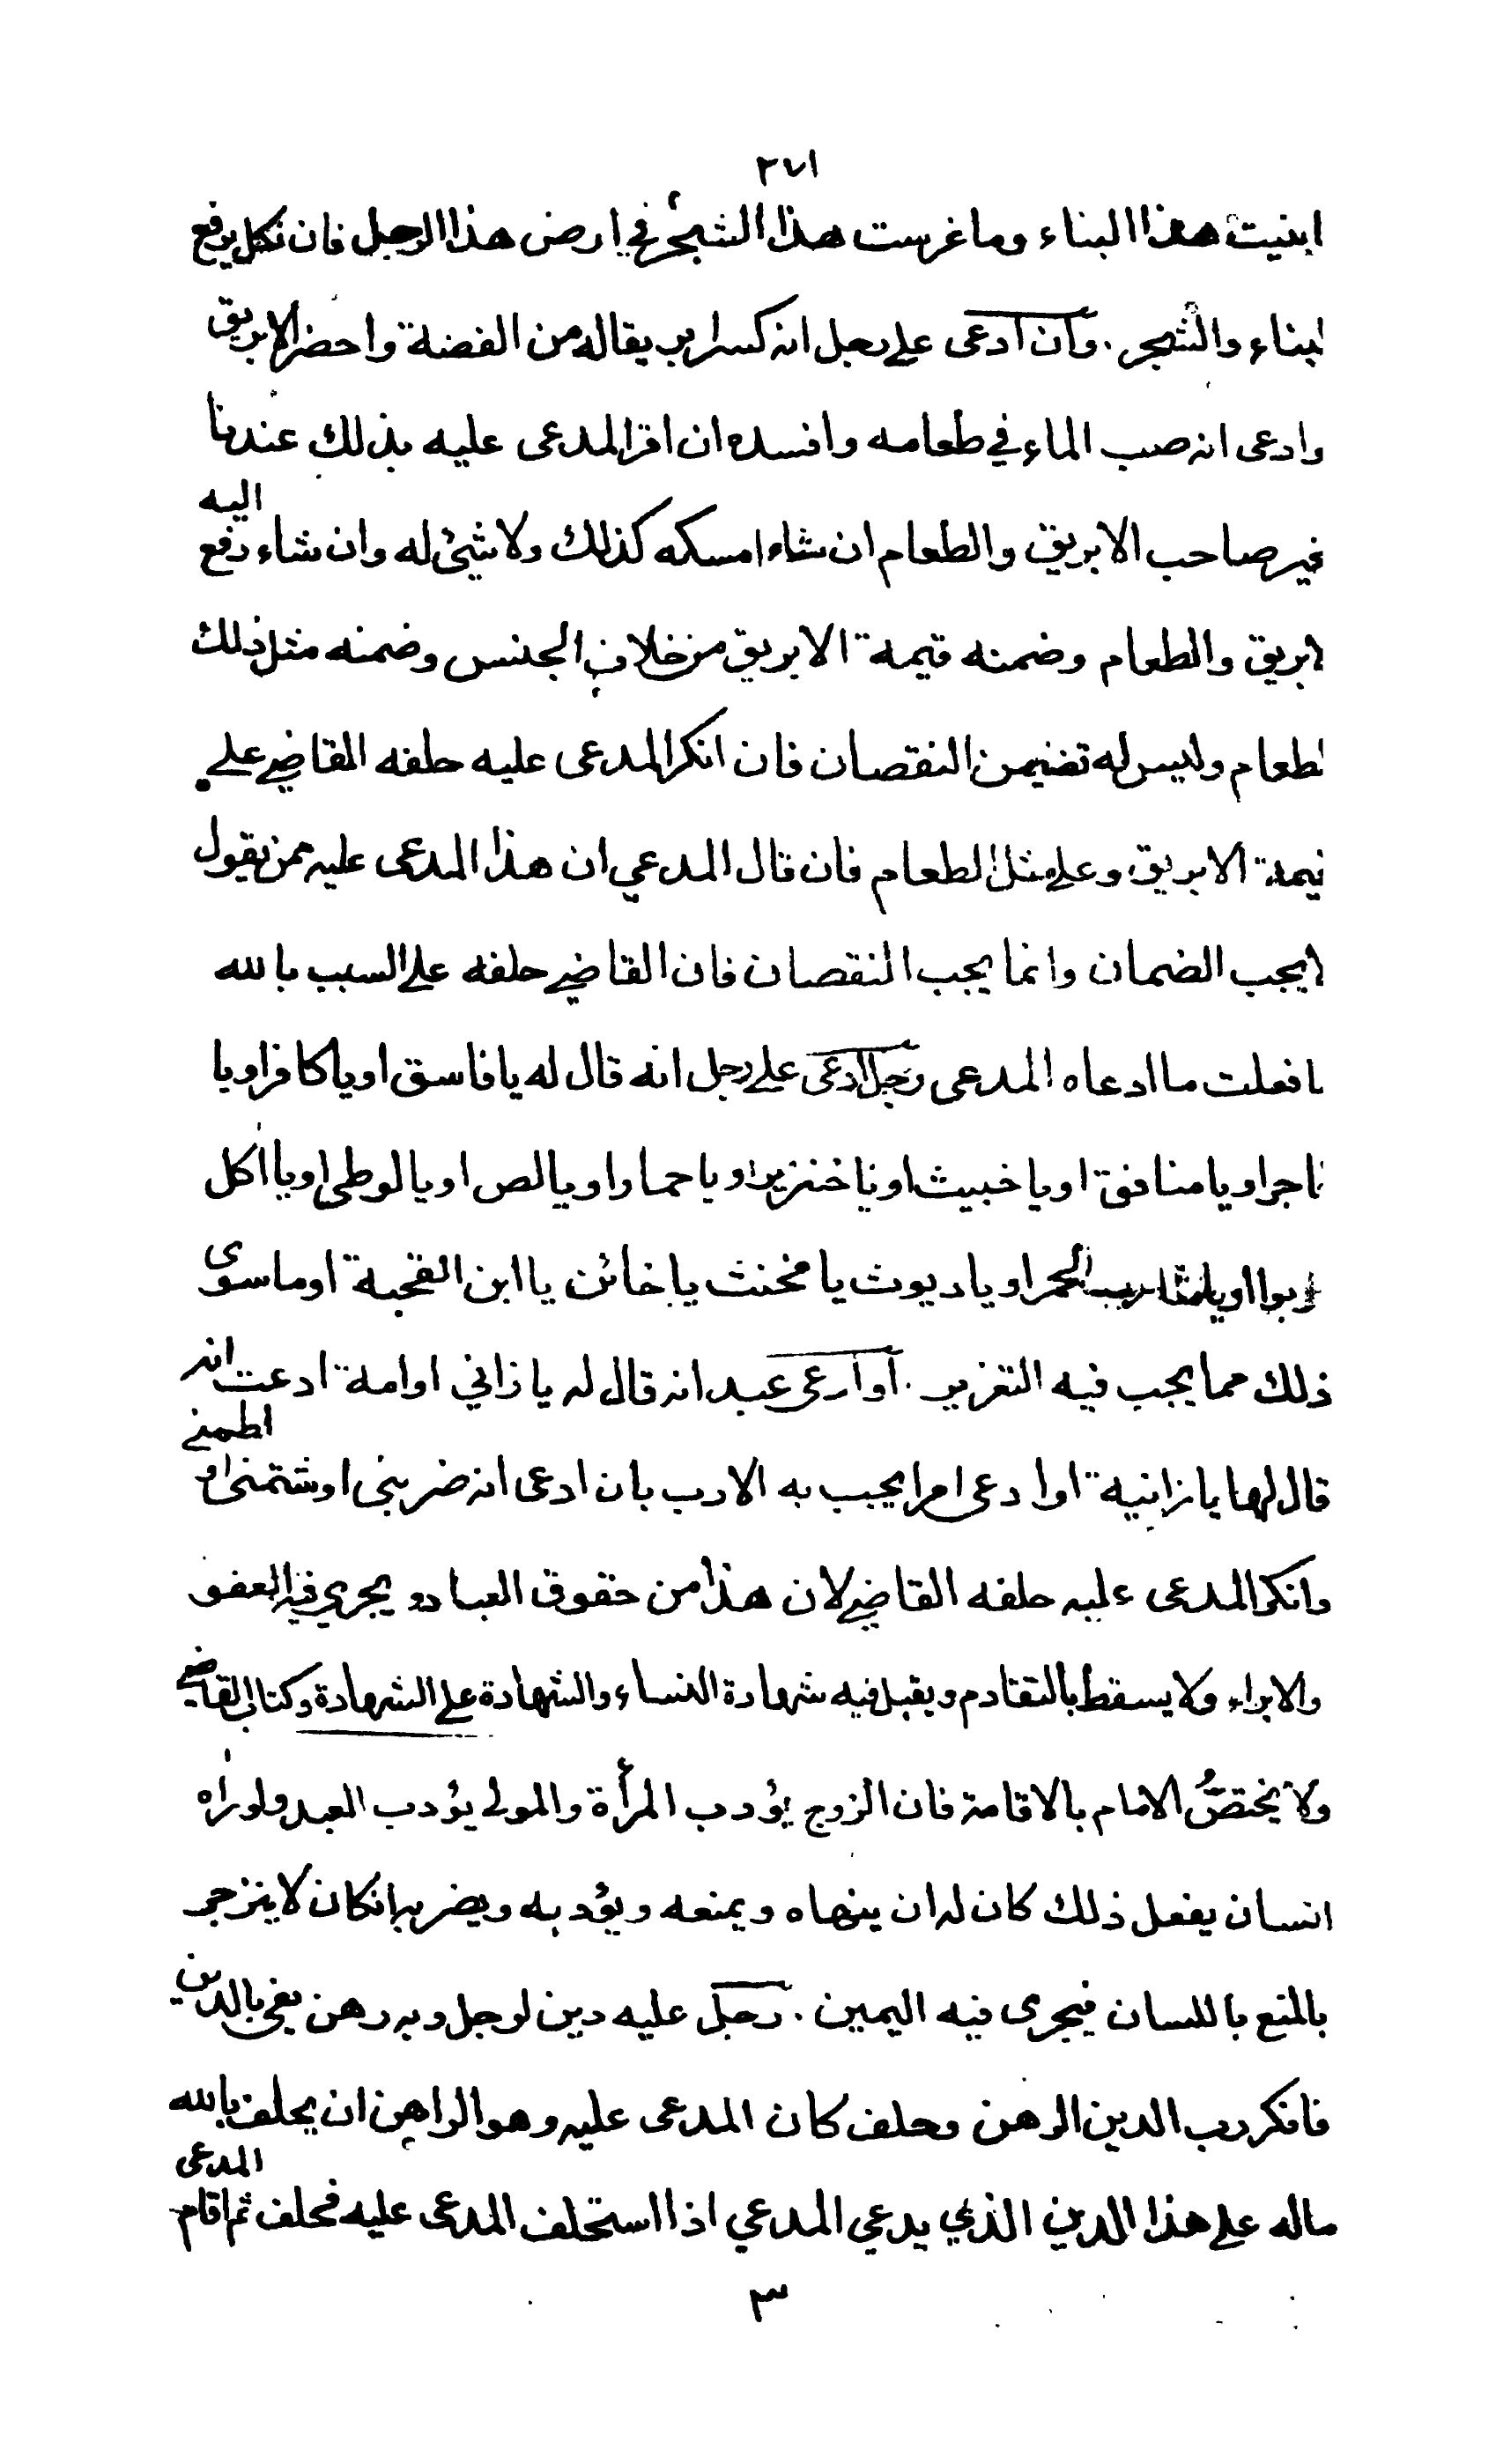 ٢٧١
ابنيت هذا البناء وما غرست هذا الشجر في ارض هذا الرجل فان نكل يرفع
لبناء والشجر . وان ادعى على رجل انه كسر ابريقا له من الفضة واحضر الابريق
وادعى انه صب الماء في طعامه وافسده ان اقر المدعى عليه بذلك عندنا
خير صاحب الابريق والطعام ان شاء امسكه كذلك ولا شئ له وان شاء دفع اليه
لابريق والطعام وضمنه قيمة الابريق من خلاف الجنس وضمنه مثل ذلك
لطعام وليس له تضمين النقصان فان انكر المدعى عليه حلفه القاضي على
قيمة الابريق وعلى مثل الطعام فان قال المدعي ان هذا المدعى عليه ممن يقول
لايجب الضمان وانما يجب النقصان فان القاضي حلفه على السبب بالله
ما فعلت ما ادعاه المدعى رجل ادعى على رجل انه قال له يا فاسق او يا كافر او يا
فاجر او يا منافق او يا خبيث او يا خنزير او يا حمار او يا لص او يا لوطي او يا اكل
ربوا او يا شارب الخمر او يا ديوث يا مخنث يا خائن يا ابن القحبة او ما سوى
ذلك مما يجب فيه التعزير . او ادعى عبد انه قال له يا زاني او امة ادعت انه
قال لها يا زانية او ادعى امرا يجب به الادب بان ادعى انه ضربنى او شتمنى او لطمني
وانكر المدعى عليه حلفه القاضي لان هذا من حقوق العباد و يجري فيه العفو
والابراء ولا يسقط بالتقادم ويقبل فيه شهادة النساء والشهادة على الشهادة وكتاب القاضي
ولا يختصّ الامام بالاقامة فان الزوج يؤدب المرأة والمولى يؤدب العبد ولو رآه
انسان يفعل ذلك كان له ان ينهاه ويمنعه ويؤدبه ويضربه انكان لا ينزجر
بالمنع باللسان فيجرى فيه اليمين . رجل عليه دين لرجل وبه رهن يفي بالدين
فانكر رب الدين الرهن وحلف كان المدعى عليه وهو الراهن ان يحلف بالله
ماله على هذا الدين الذي يدعي المدعي اذا استحلف المدعى عليه فحلف ثم اقام المدعى
٣